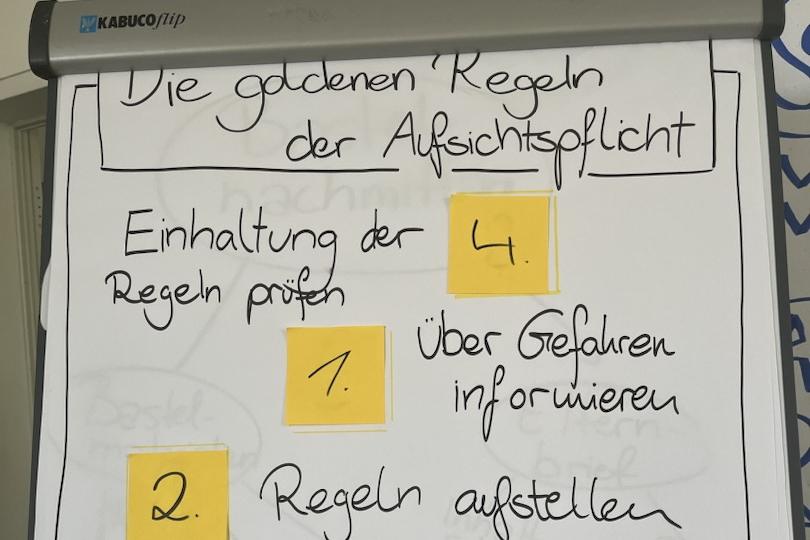 KABUCOflip
Die goldenen Regeln
der Aufsichtspflicht
Einhaltung der
Regeln prüfen
4.
1.
Über Gefahren
informieren
2.
Regeln aufstellen